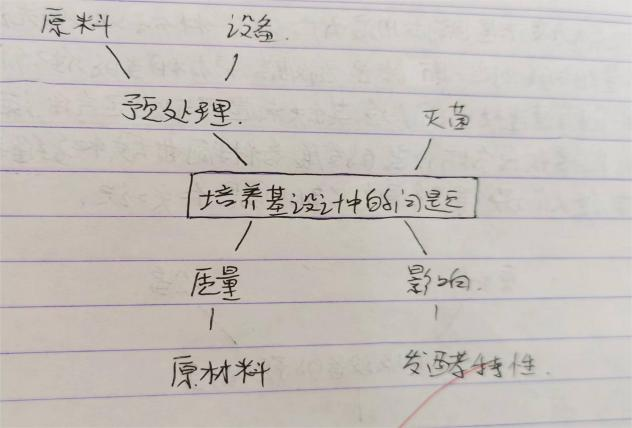 原料 设备.
预处理. 灭菌
培养基设计中的问题
质量 影响.
原材料 发酵特性.